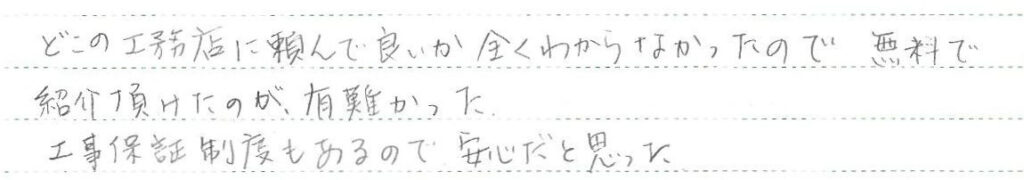 どこの工務店に頼んで良いか 全くわからなかったので 無料で
紹介頂けたのが、有難かった.
工事保証制度もあるので 安心だと思った